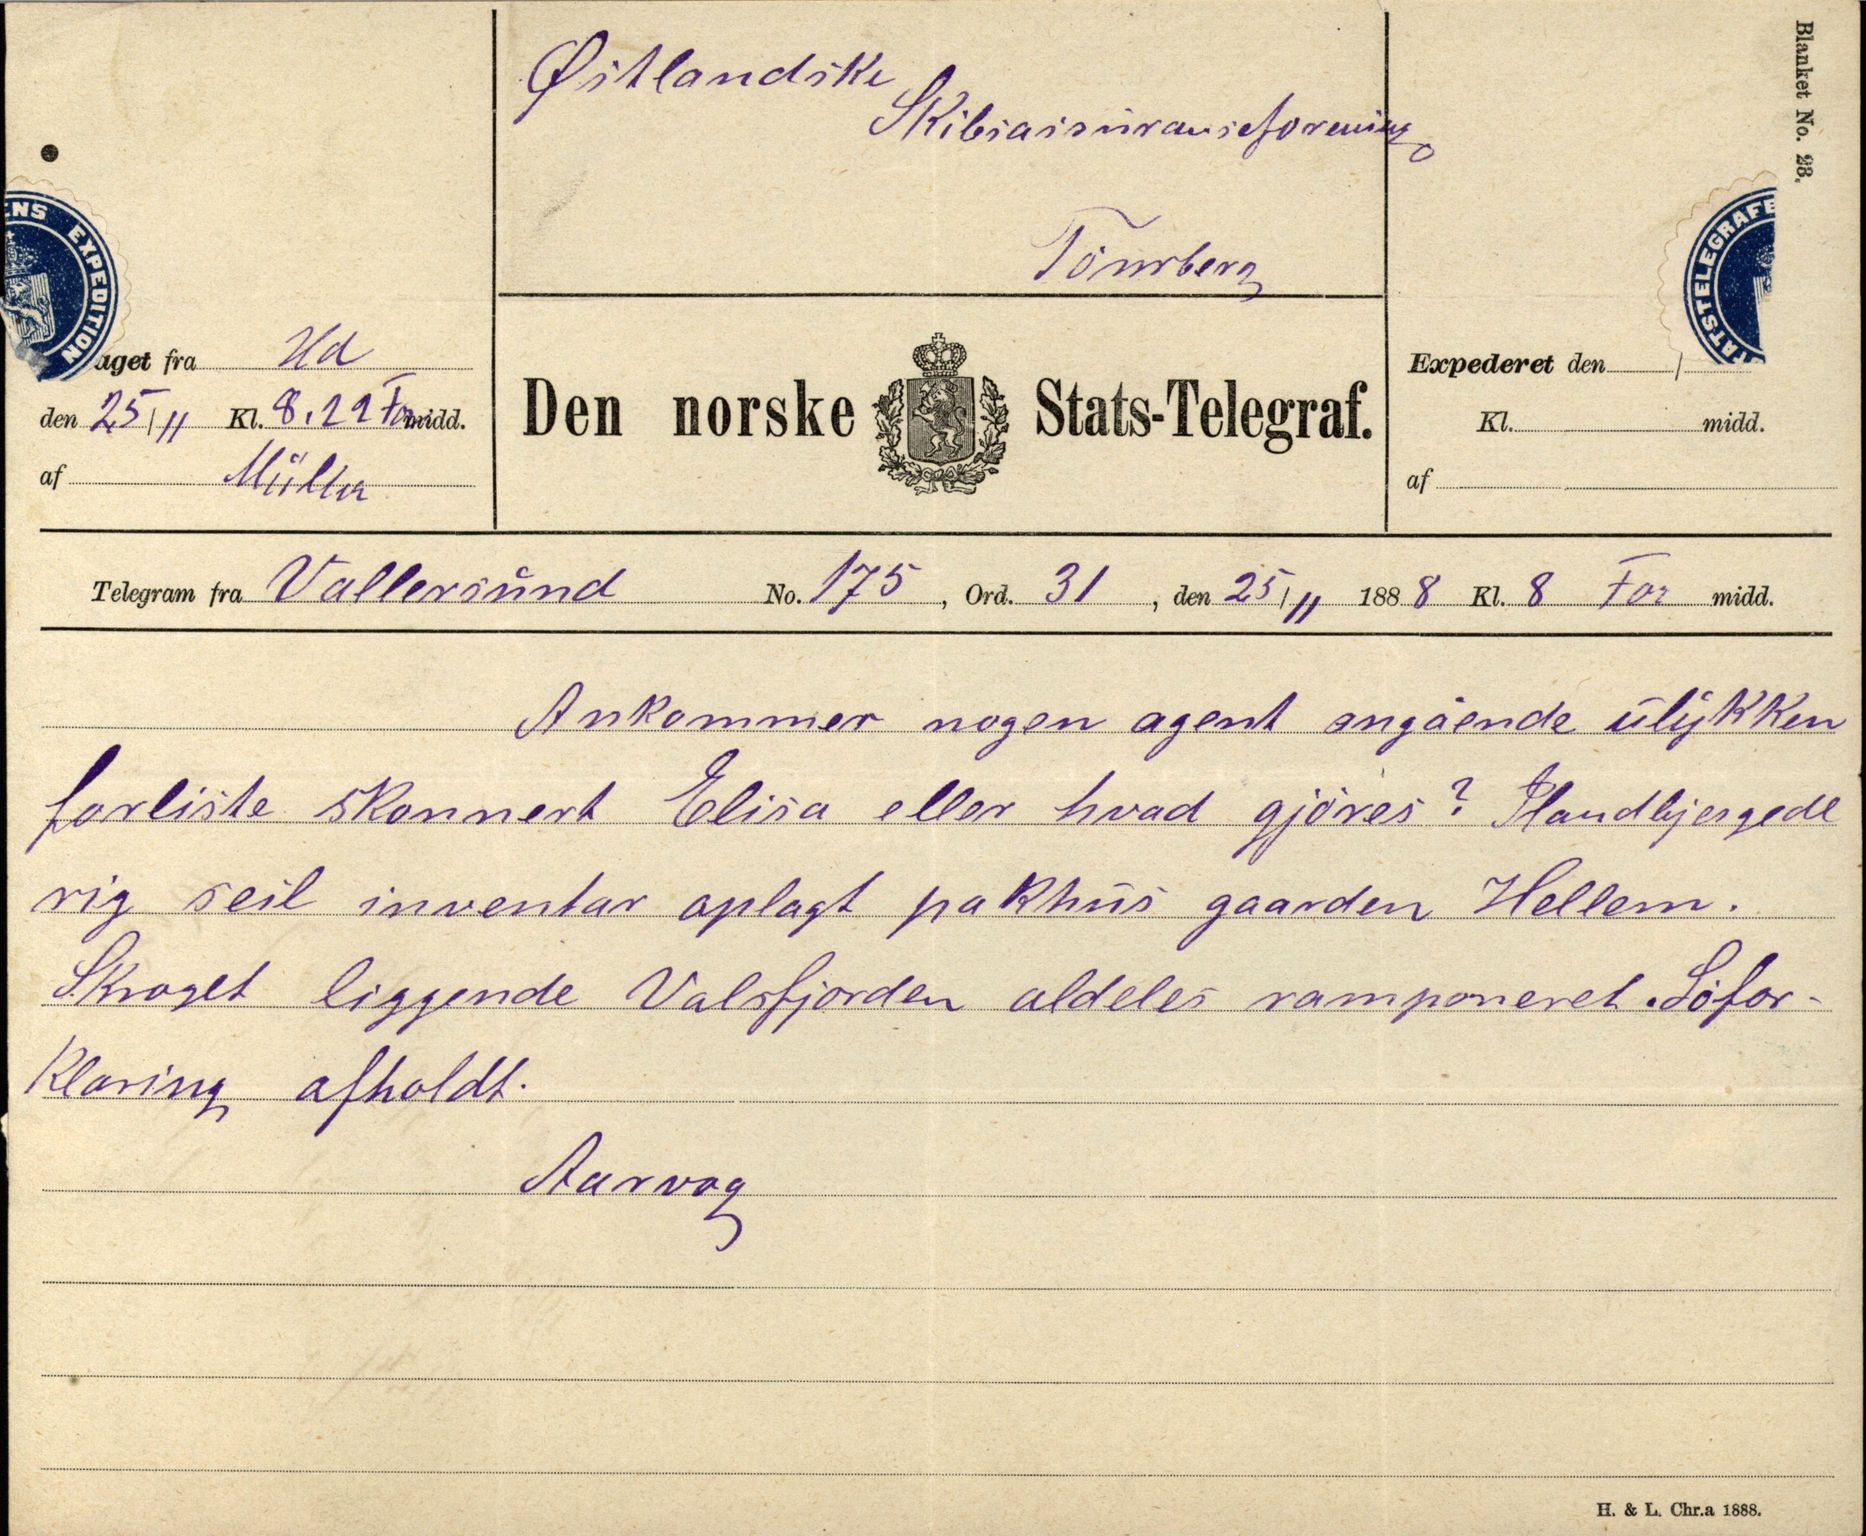 Blanket No. 23.
Østlandske
Skibsassuranseforening
Tönsberg
ENS EXPEDITION
STATSTELEGRAFE
aget fra Hd
den 25/11 Kl. 8.22 For midd.
af Müller
Den norske Stats-Telegraf.
Expederet den /
Kl. midd.
af
Telegram fra Vallersund No. 175, Ord. 31, den 25/11 1888 Kl. 8 For midd.
Ankommer nogen agent angående ulykken
forliste skonnert Elisa eller hvad gjöres? Ilandbjergede
rig seil inventar oplagt pakhus gaarden Hellem.
Skroget liggende Valsfjorden aldeles ramponeret. Söfor-
klaring afholdt.
Aarvog
H. & L. Chr.a 1888.